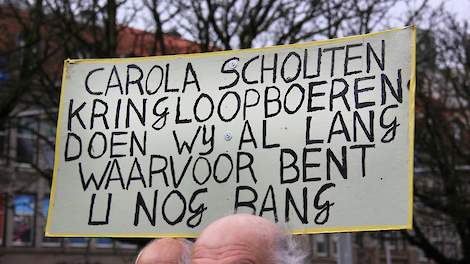 CAROLA SCHOUTEN
KRINGLOOPBOEREN
DOEN WY AL LANG
WAARVOOR BENT
U NOG BANG